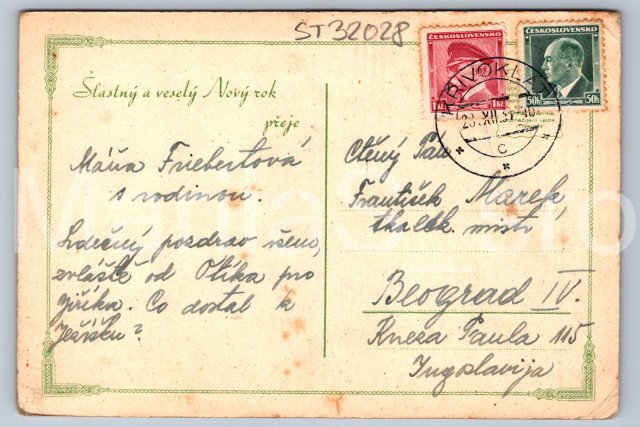 ST32028
ČESKOSLOVENSKO
1Kč 1Kč
ČESKOSLOVENSKO
50h 50h
KŘIVOKLÁT
c
Šťastný a veselý Nový rok
přeje
Máňa Friebertová
s rodinou.
Srdečný pozdrav všem,
zvláště od Otíka pro
Jiříka. Co dostal k
Ježíšku?
Ctěný Pan
František Marek
tkalc. mistr
Beograd IV.
Kneza Paula 115
Jugoslavija